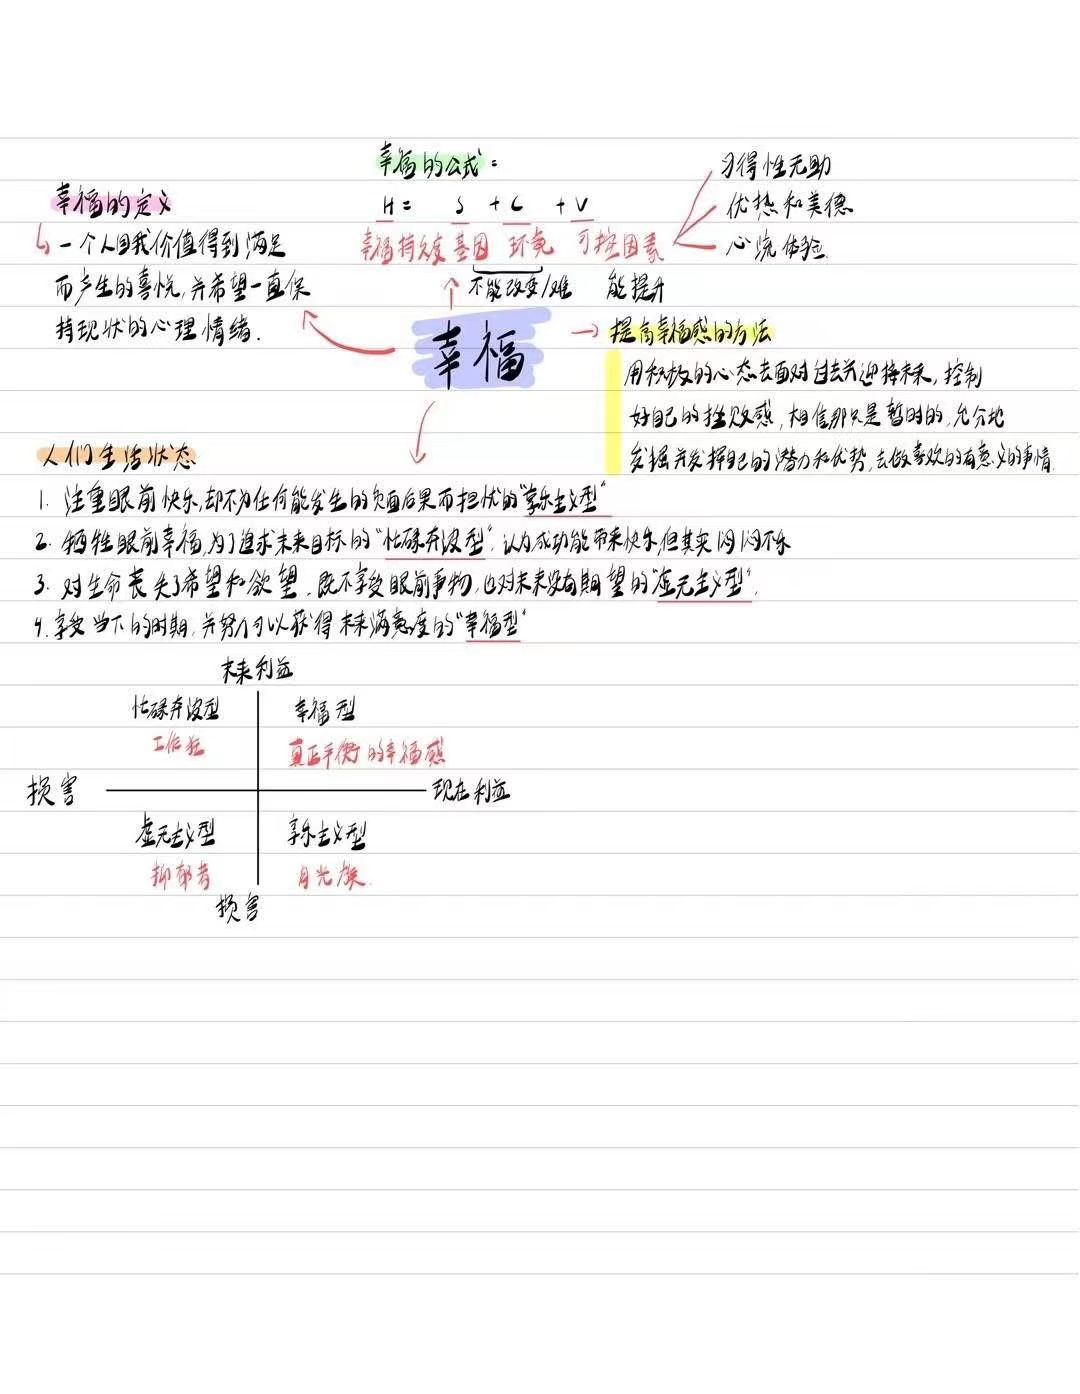 幸福的公式：
H = S + C + V
幸福持久度 基因 环境 可控因素
不能改变/难 能提升
习得性无助
优势和美德
心流体验
幸福的定义
一个人自我价值得到满足
而产生的喜悦,并希望一直保
持现状的心理情绪.
幸福
提高幸福感的方法
用积极的心态去面对过去并迎接未来,控制
好自己的挫败感,相信那只是暂时的,充分地
发掘并发挥自己的潜力和优势,去做喜欢的有意义的事情
人们生活状态
1. 注重眼前快乐,却不为任何能发生的负面后果而担忧的“享乐主义型“
2. 牺牲眼前幸福,为了追求未来目标的“忙碌奔波型“,认为成功能带来快乐,但其实闷闷不乐
3. 对生命丧失了希望和欲望,既不享受眼前事物,也对未来没有期望的“虚无主义型“.
4. 享受当下的时期,并努力可以获得未来满意度的“幸福型“
未来利益
忙碌奔波型 幸福型
工作狂 真正平衡的幸福感
损害 现在利益
虚无主义型 享乐主义型
抑郁者 月光族.
损害